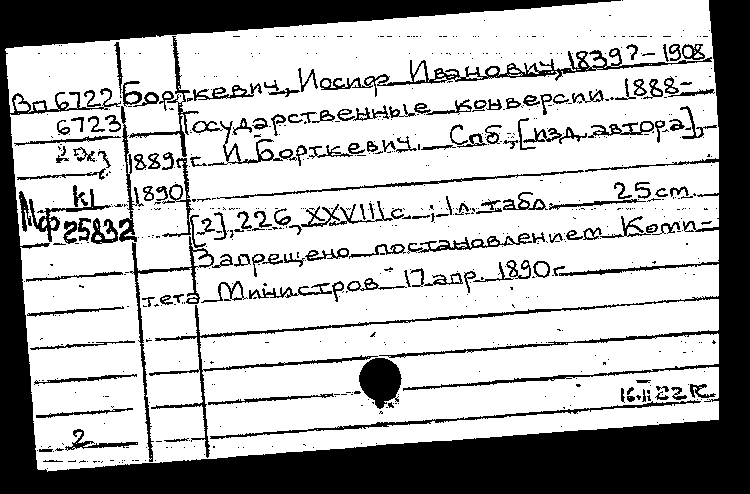 Вп 6722 Борткевич, Иосиф Иванович, 1839?-1908
6723 Государственные конверсии 1888-
2 экз 1889гг. И. Борткевич. Спб., [изд. автора],
К1 1890
Мф 25832 [2], 226, XXVIII с.; 1л. табл. 25 cm
Запрещено постановлением Коми-
тета Министров 17 апр. 1890г.
2